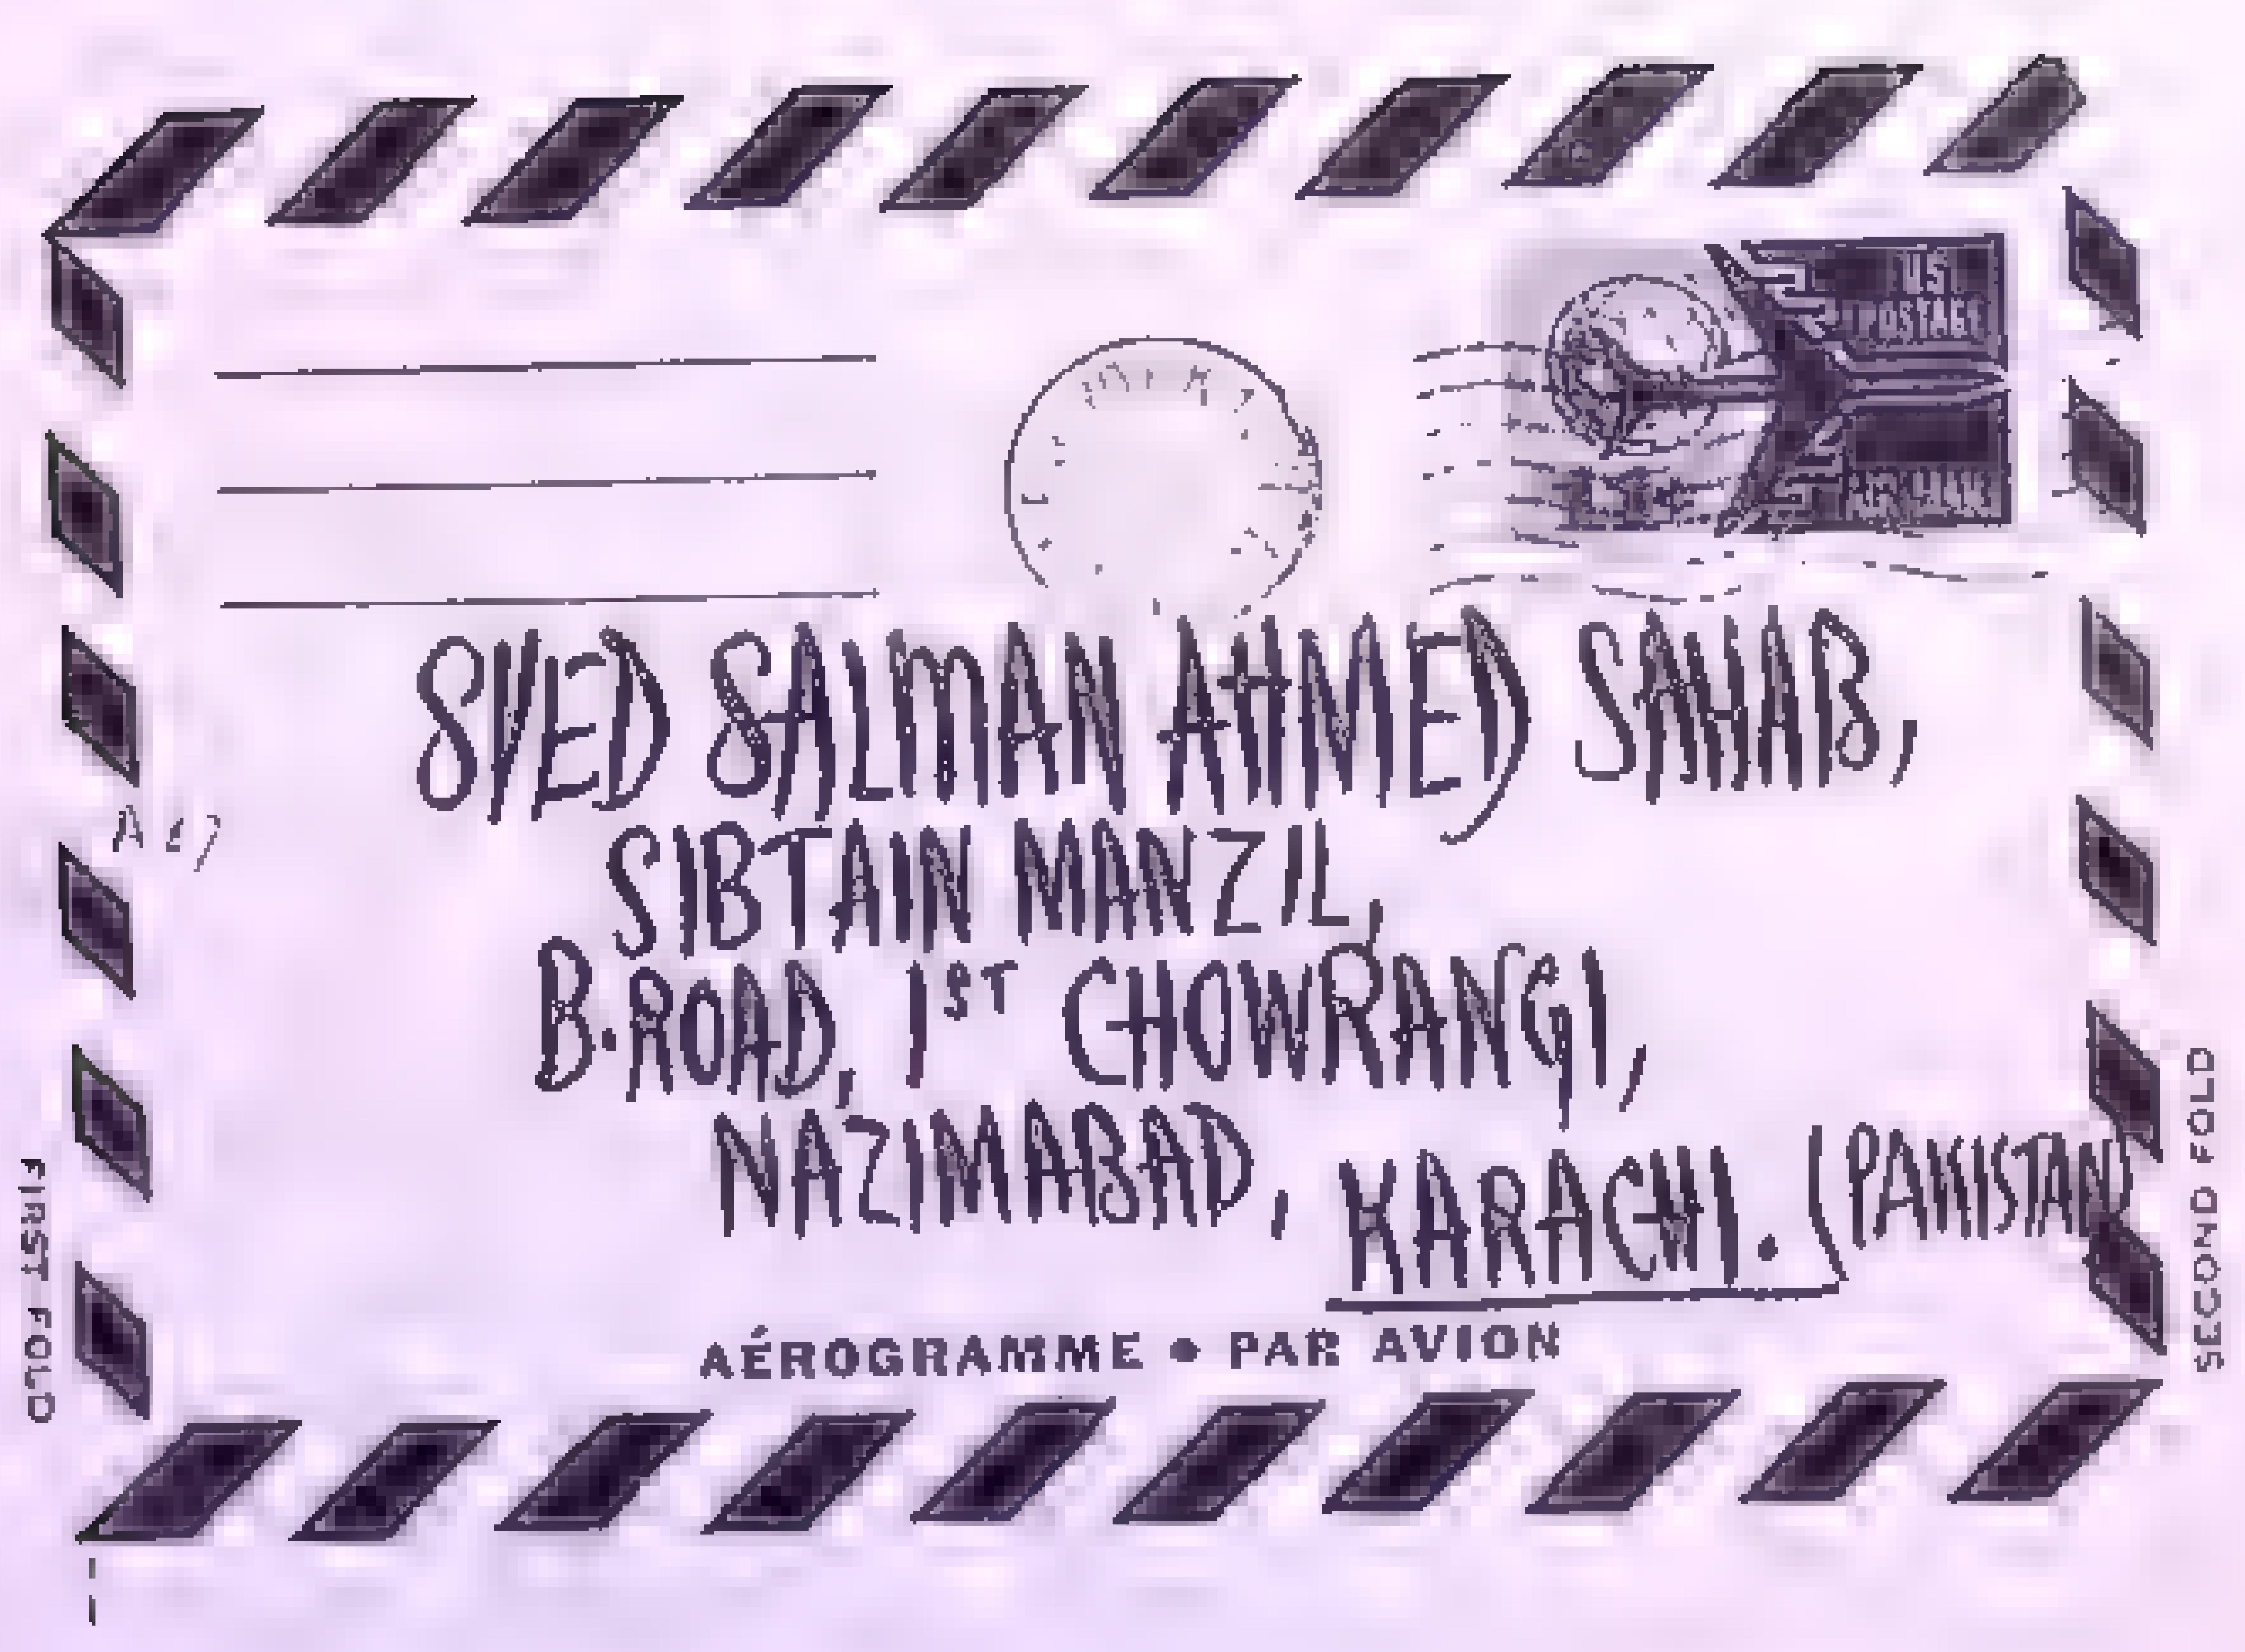 US
POSTAGE
SYED SALMAN AHMED SAHAB,
SIBTAIN MANZIL,
B.ROAD, 1ST CHOWRANGI,
NAZIMABAD, KARACHI. (PAKISTAN)
AÉROGRAMME • PAR AVION
FIRST FOLD
SECOND FOLD